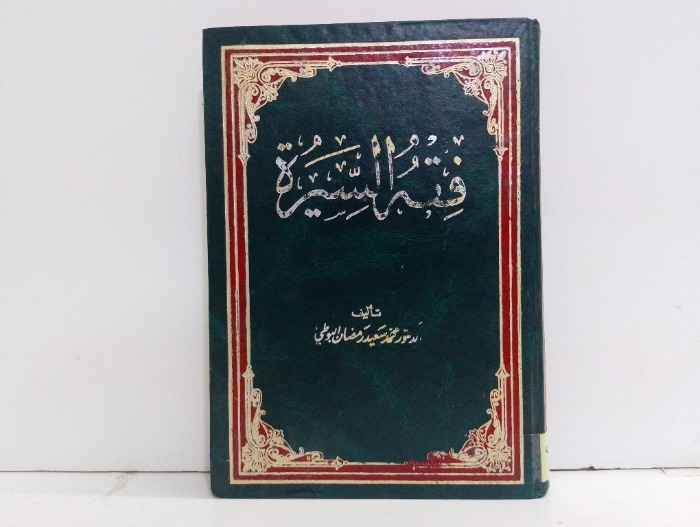 فِقْهُ السِّيرَة
تأليف
الدكتور محمد سعيد رمضان البوطي